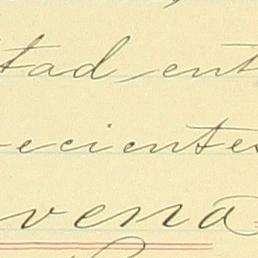 tad ent
ecientes
vena